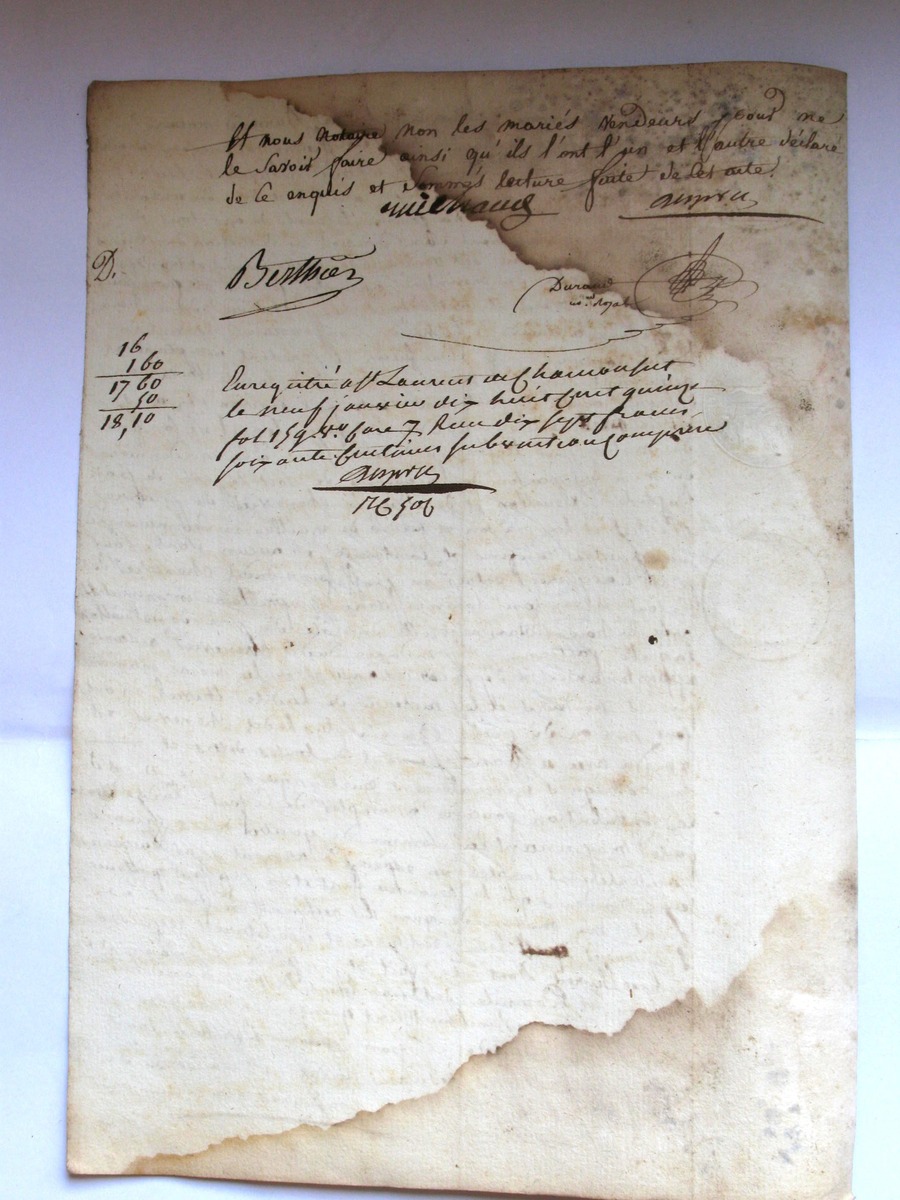 Et nous Notaire non les mariés vendeurs pour ne
le savoir faire ainsi qu'ils l'ont l'un et l'autre déclaré
de ce enquis et sommés lecture faite de cet acte.
D.
Berthier
Durand
no.re royal
16
1 60
17 60
50
18,10
Enregistré a St Laurent de Chamousset
le neuf janvier dix huit cent quinze
fol 159 vo. case 7 Reçu dix sept francs
soixante centimes subvention comprise